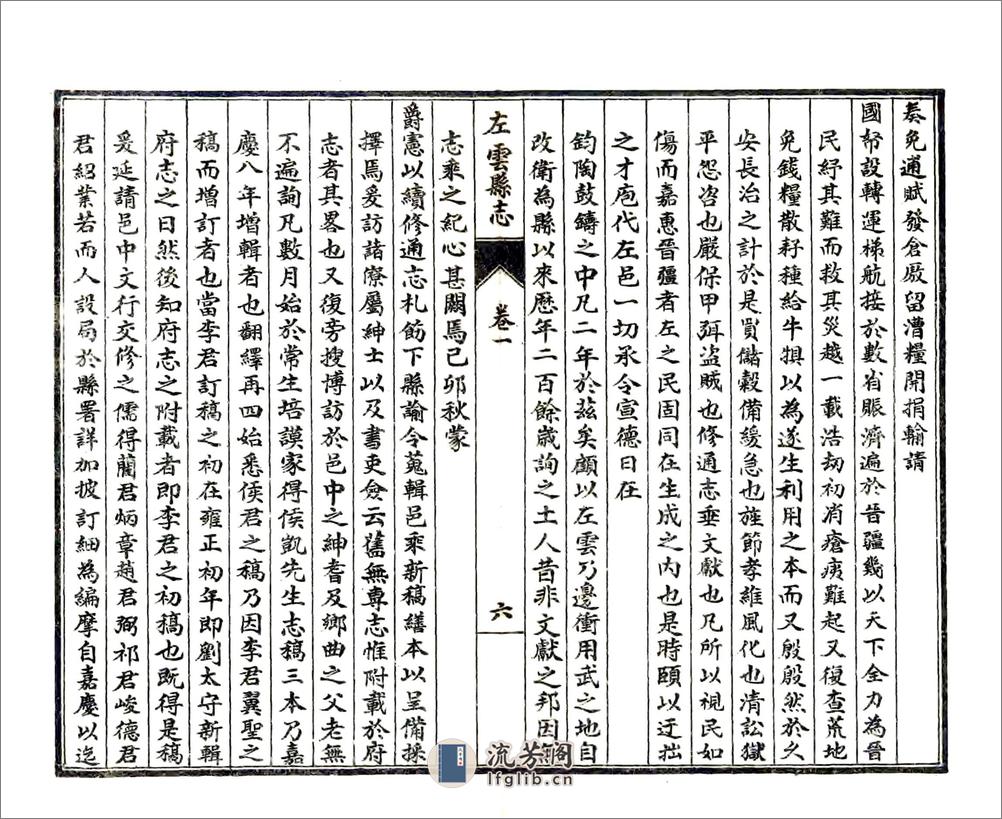 奏免逋賦發倉廒留漕糧開捐輸請
國帑設轉運梯航接於數省賑濟遍於晉疆幾以天下全力為晉
民紓其難而救其災越一載浩劫初消瘡痍難起又復查荒地
免錢糧散籽種給牛犋以為遂生利用之本而又殷殷然於久
安長治之計於是買儲穀備緩急也旌節孝維風化也清訟獄
平怨咨也嚴保甲弭盜賊也修通志垂文獻也凡所以視民如
傷而嘉惠晉疆者左之民固同在生成之內也是時頤以迂拙
之才庖代左邑一切承令宣德日在
鈞陶鼓鑄之中凡二年於茲矣顧以左雲乃邊衝用武之地自
改衛為縣以來歷年二百餘歲詢之土人昔非文獻之邦因
左雲縣志
卷一
六
志乘之紀心甚闕焉己卯秋蒙
爵憲以續修通志札飭下縣諭令蒐輯邑乘新稿繕本以呈備採
擇焉爰訪諸僚屬紳士以及書吏僉云舊無專志惟附載於府
志者其畧也又復旁搜博訪於邑中之紳耆及鄉曲之父老無
不遍詢凡數月始於常生培謨家得侯凱先生志稿三本乃嘉
慶八年增輯者也翻繹再四始悉侯君之稿乃因李君翼聖之
稿而增訂者也當李君訂稿之初在雍正初年即劉太守新輯
府志之日然後知府志之附載者即李君之初稿也既得是稿
爰延請邑中文行交修之儒得藺君炳章趙君弼祁君峻德君
君紹業若而人設局於縣署詳加披訂細為編摩自嘉慶以迄
流芳阁
lfglib.cn